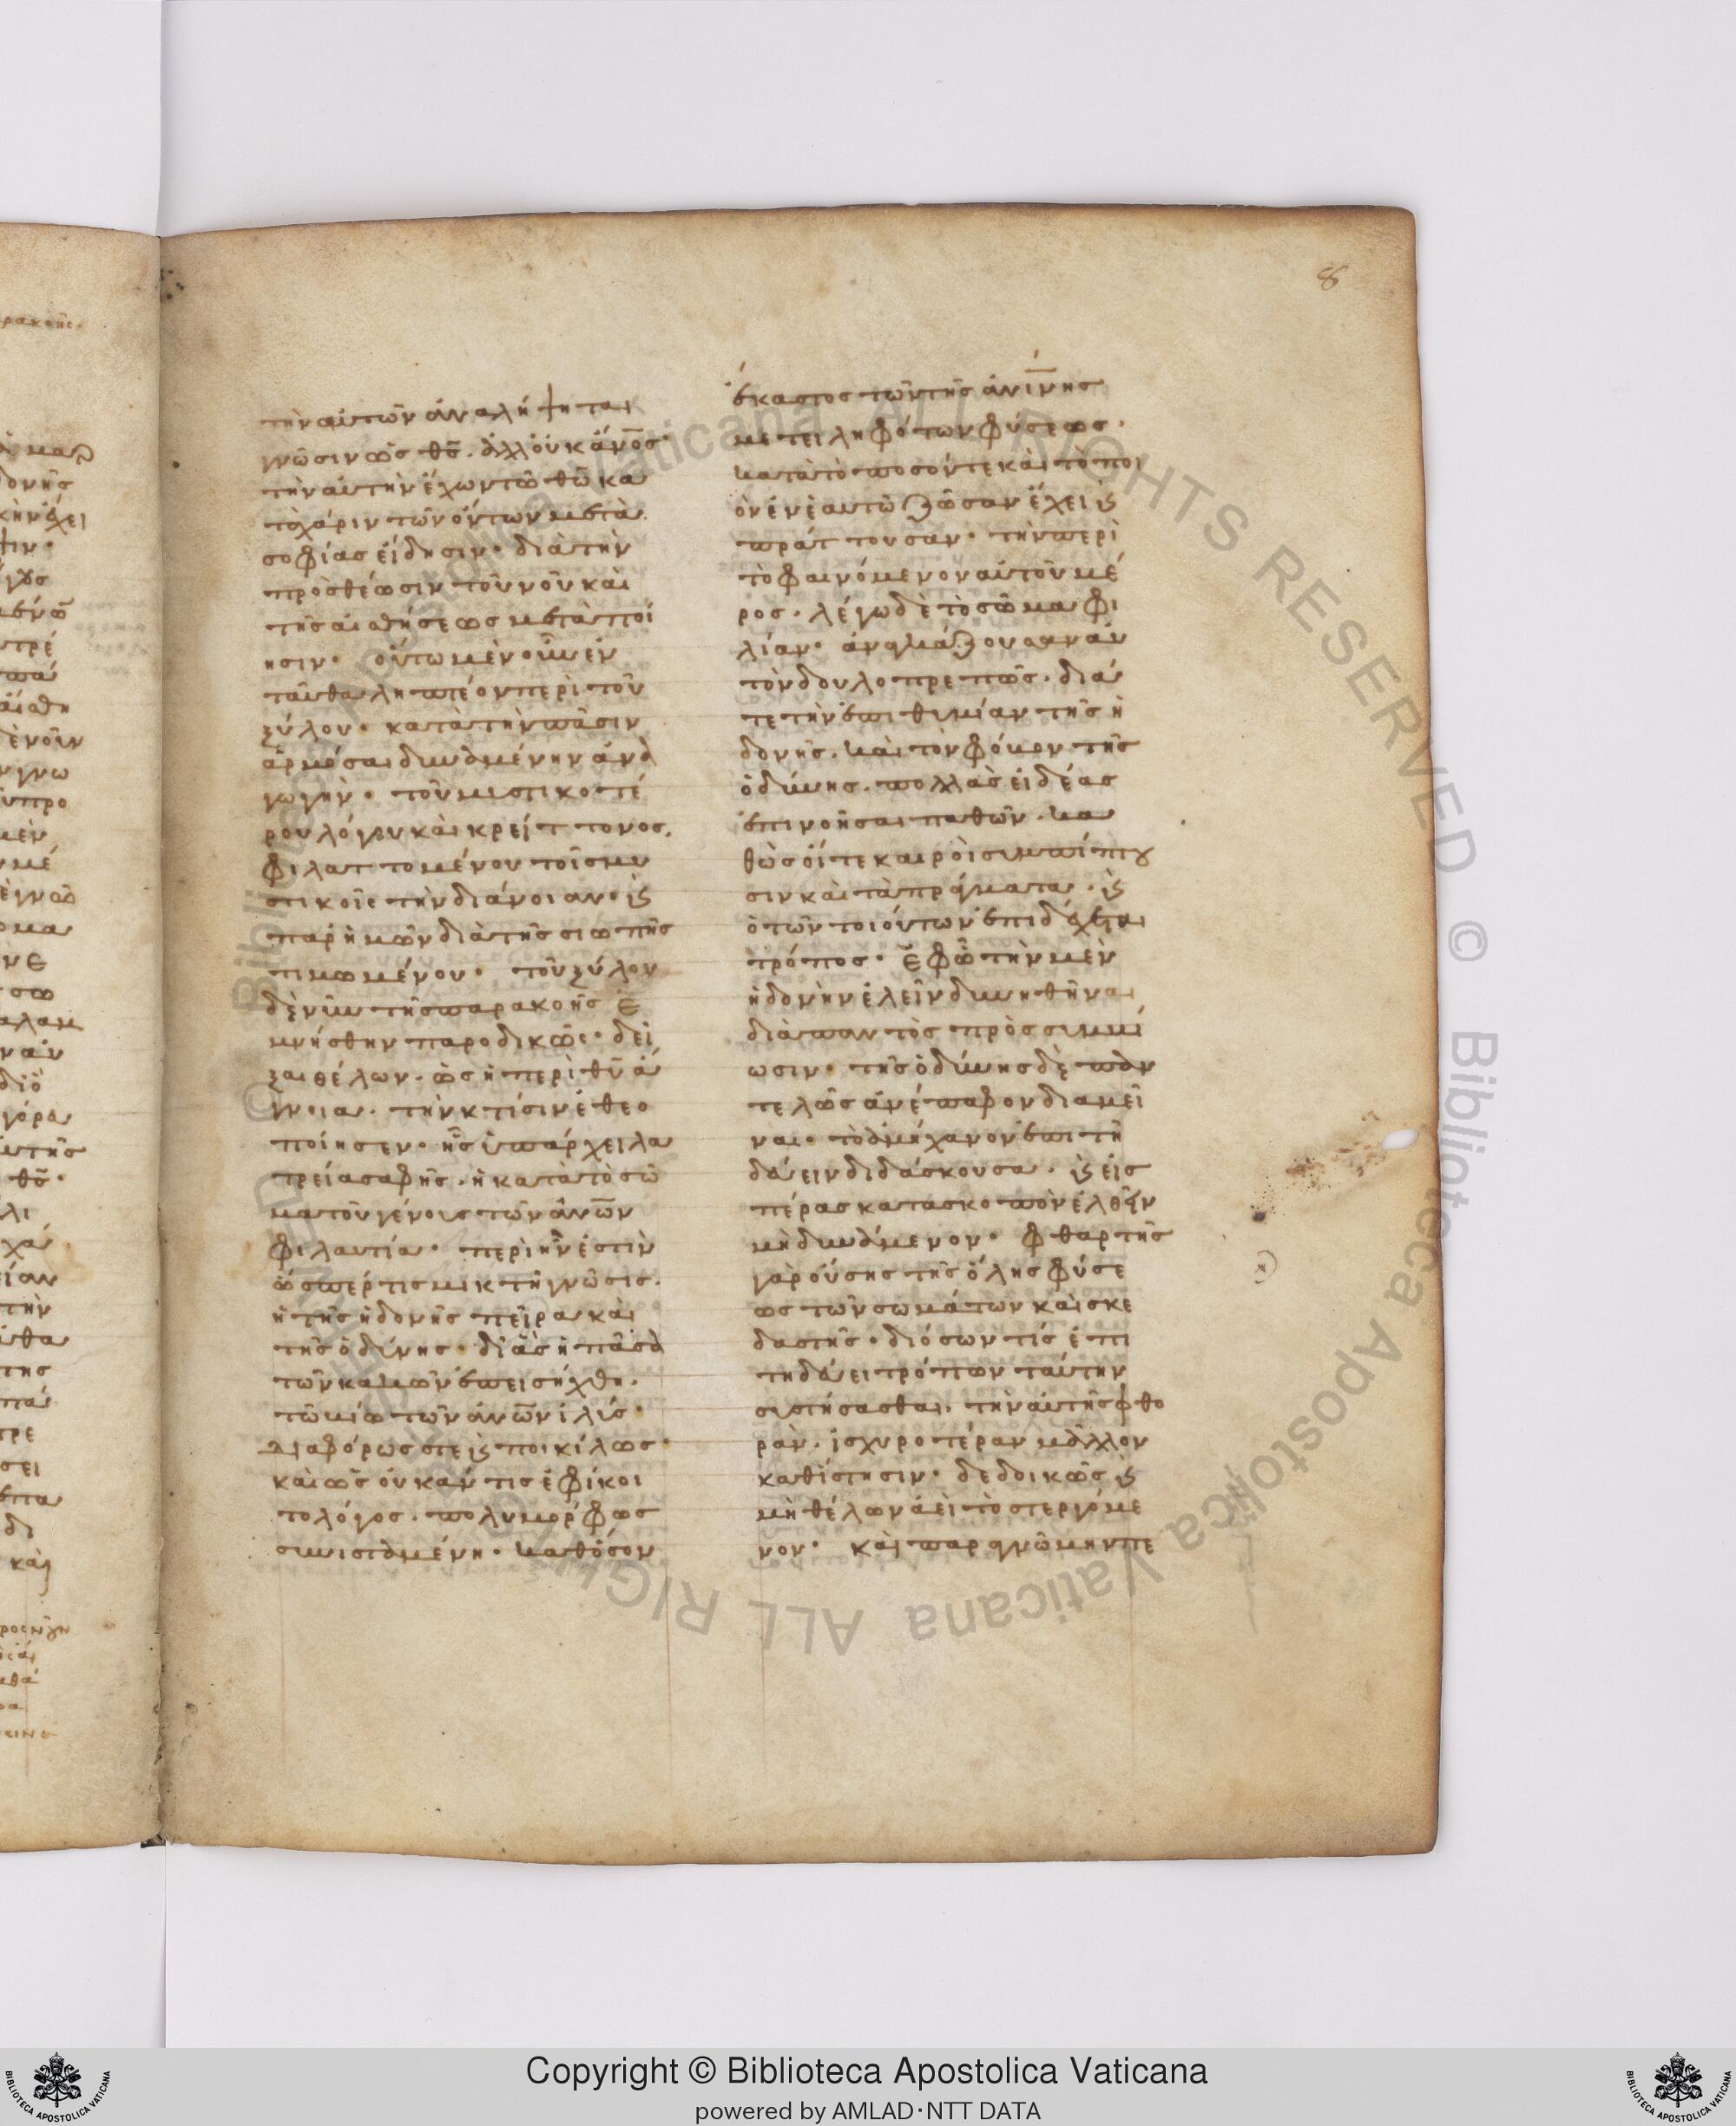 8
τὴν αὐτῶν ἀναλήψηται
γνῶσιν ὡς θσ̅. ἀλλ' οὐκ ἄνο̅σ
τὴν αὐτὴν ἔχων τῶ θω̅ κα
τὰ χάριν τῶν ὄντων μετὰ
σοφίας εἴδησιν· διὰ τὴν
πρὸς θέωσιν τοῦ νοῦ καὶ
τῆς αἰσθήσεως μεταποί
ησιν· οὕτω μὲν οὖν ἐν
ταῦθα ληπτέον περὶ τοῦ
ξύλου· κατὰ τὴν πᾶσιν
ἁρμόσαι δυναμένην ἀνα
γωγὴν· τοῦ μυστικωτέ
ρου λόγου καὶ κρείττονος,
φυλαττομένου τοῖς μυ
στικοῖς τὴν διάνοιαν· καὶ
παρ' ἡμῶν διὰ τῆς σιωπῆς
τιμωμένου· τοῦ ξύλου
δὲ νῦν τῆς παρακοῆς ἐ
μνήσθην παροδικῶς· δεῖ
ξαι θέλων. ὡς ἡ περὶ θυ̅ ἄ
γνοια. τὴν κτίσιν ἐθεο
ποίησεν· ἧς ὑπάρχει λα
τρεία σαφὴς. ἡ κατὰ τὸ σῶ
μα τοῦ γένους τῶν ἀνω̅ν
φιλαυτία· περὶ ἥν ἐστὶν
ὥσπερ τις μικτὴ γνῶσις.
ἡ τῆς ἡδονῆς πεῖρα καὶ
τῆς ὀδύνης· δι' ἃς ἡ πᾶσα
τῶν κακῶν ἐπεισήχθη.
τῶ βίω τῶν ἀνω̅ν ἰλύς·
διαφόρως τε καὶ ποικίλως·
καὶ ὡς οὐκ ἄν τις ἐφίκοι
το λόγος. πολυμόρφως
συνισταμένη· καθόσον
ἕκαστος τῶν τῆς ἀνι̅νης
μετειληφότων φύσεως.
κατὰ τὸ ποσόν τε καὶ τὸ ποι
ὸν ἐν ἑαυτῶ ζῶσαν ἔχει καὶ
πράττουσαν· τὴν περὶ
τὸ φαινόμενον αὐτοῦ μέ
ρος. λέγω δὲ τὸ σῶμα φι
λίαν· ἀναγκάζουσαν αὐ
τὸν δουλοπρεπῶς. διά
τε τὴν ἐπιθυμίαν τῆς ἡ
δονῆς. καὶ τὸν φόβον τῆς
ὀδύνης. πολλὰς εἰδέας
ἐπινοῆσαι παθῶν. κα
θὼς οἵ τε καιροὶ συμπίπτου
σιν καὶ τὰ πράγματα. καὶ
ὁ τῶν τοιούτων ἐπιδέχεται
τρόπος· ἐφ' ὧ τὴν μὲν
ἡδονὴν ἑλεῖν δυνηθῆναι
διὰ παντὸς πρὸς συμβί
ωσιν· τῆς ὀδύνης δὲ παν
τελῶς ἀνέπαφον διαμεῖ
ναι· τὸ ἀμήχανον ἐπιτη
δεύειν διδάσκουσα. καὶ εἰς
πέρας κατὰ σκοπὸν ἐλθεῖν
μὴ δυνάμενον· φθαρτῆς
γὰρ οὔσης τῆς ὅλης φύσε
ως τῶν σωμάτων καὶ σκε
δαστῆς· δι' ὅσων τίς ἐπι
τηδεύει τρόπων ταύτην
συστήσασθαι, τὴν αὐτῆς φθο
ρὰν. ἰσχυροτέραν μᾶλλον
καθίστησιν· δεδοικὼς καὶ
μὴ θέλων ἀεὶ τὸ στεργόμε
νον· καὶ παρὰ γνώμην πε
Copyright © Biblioteca Apostolica Vaticana
powered by AMLAD・NTT DATA